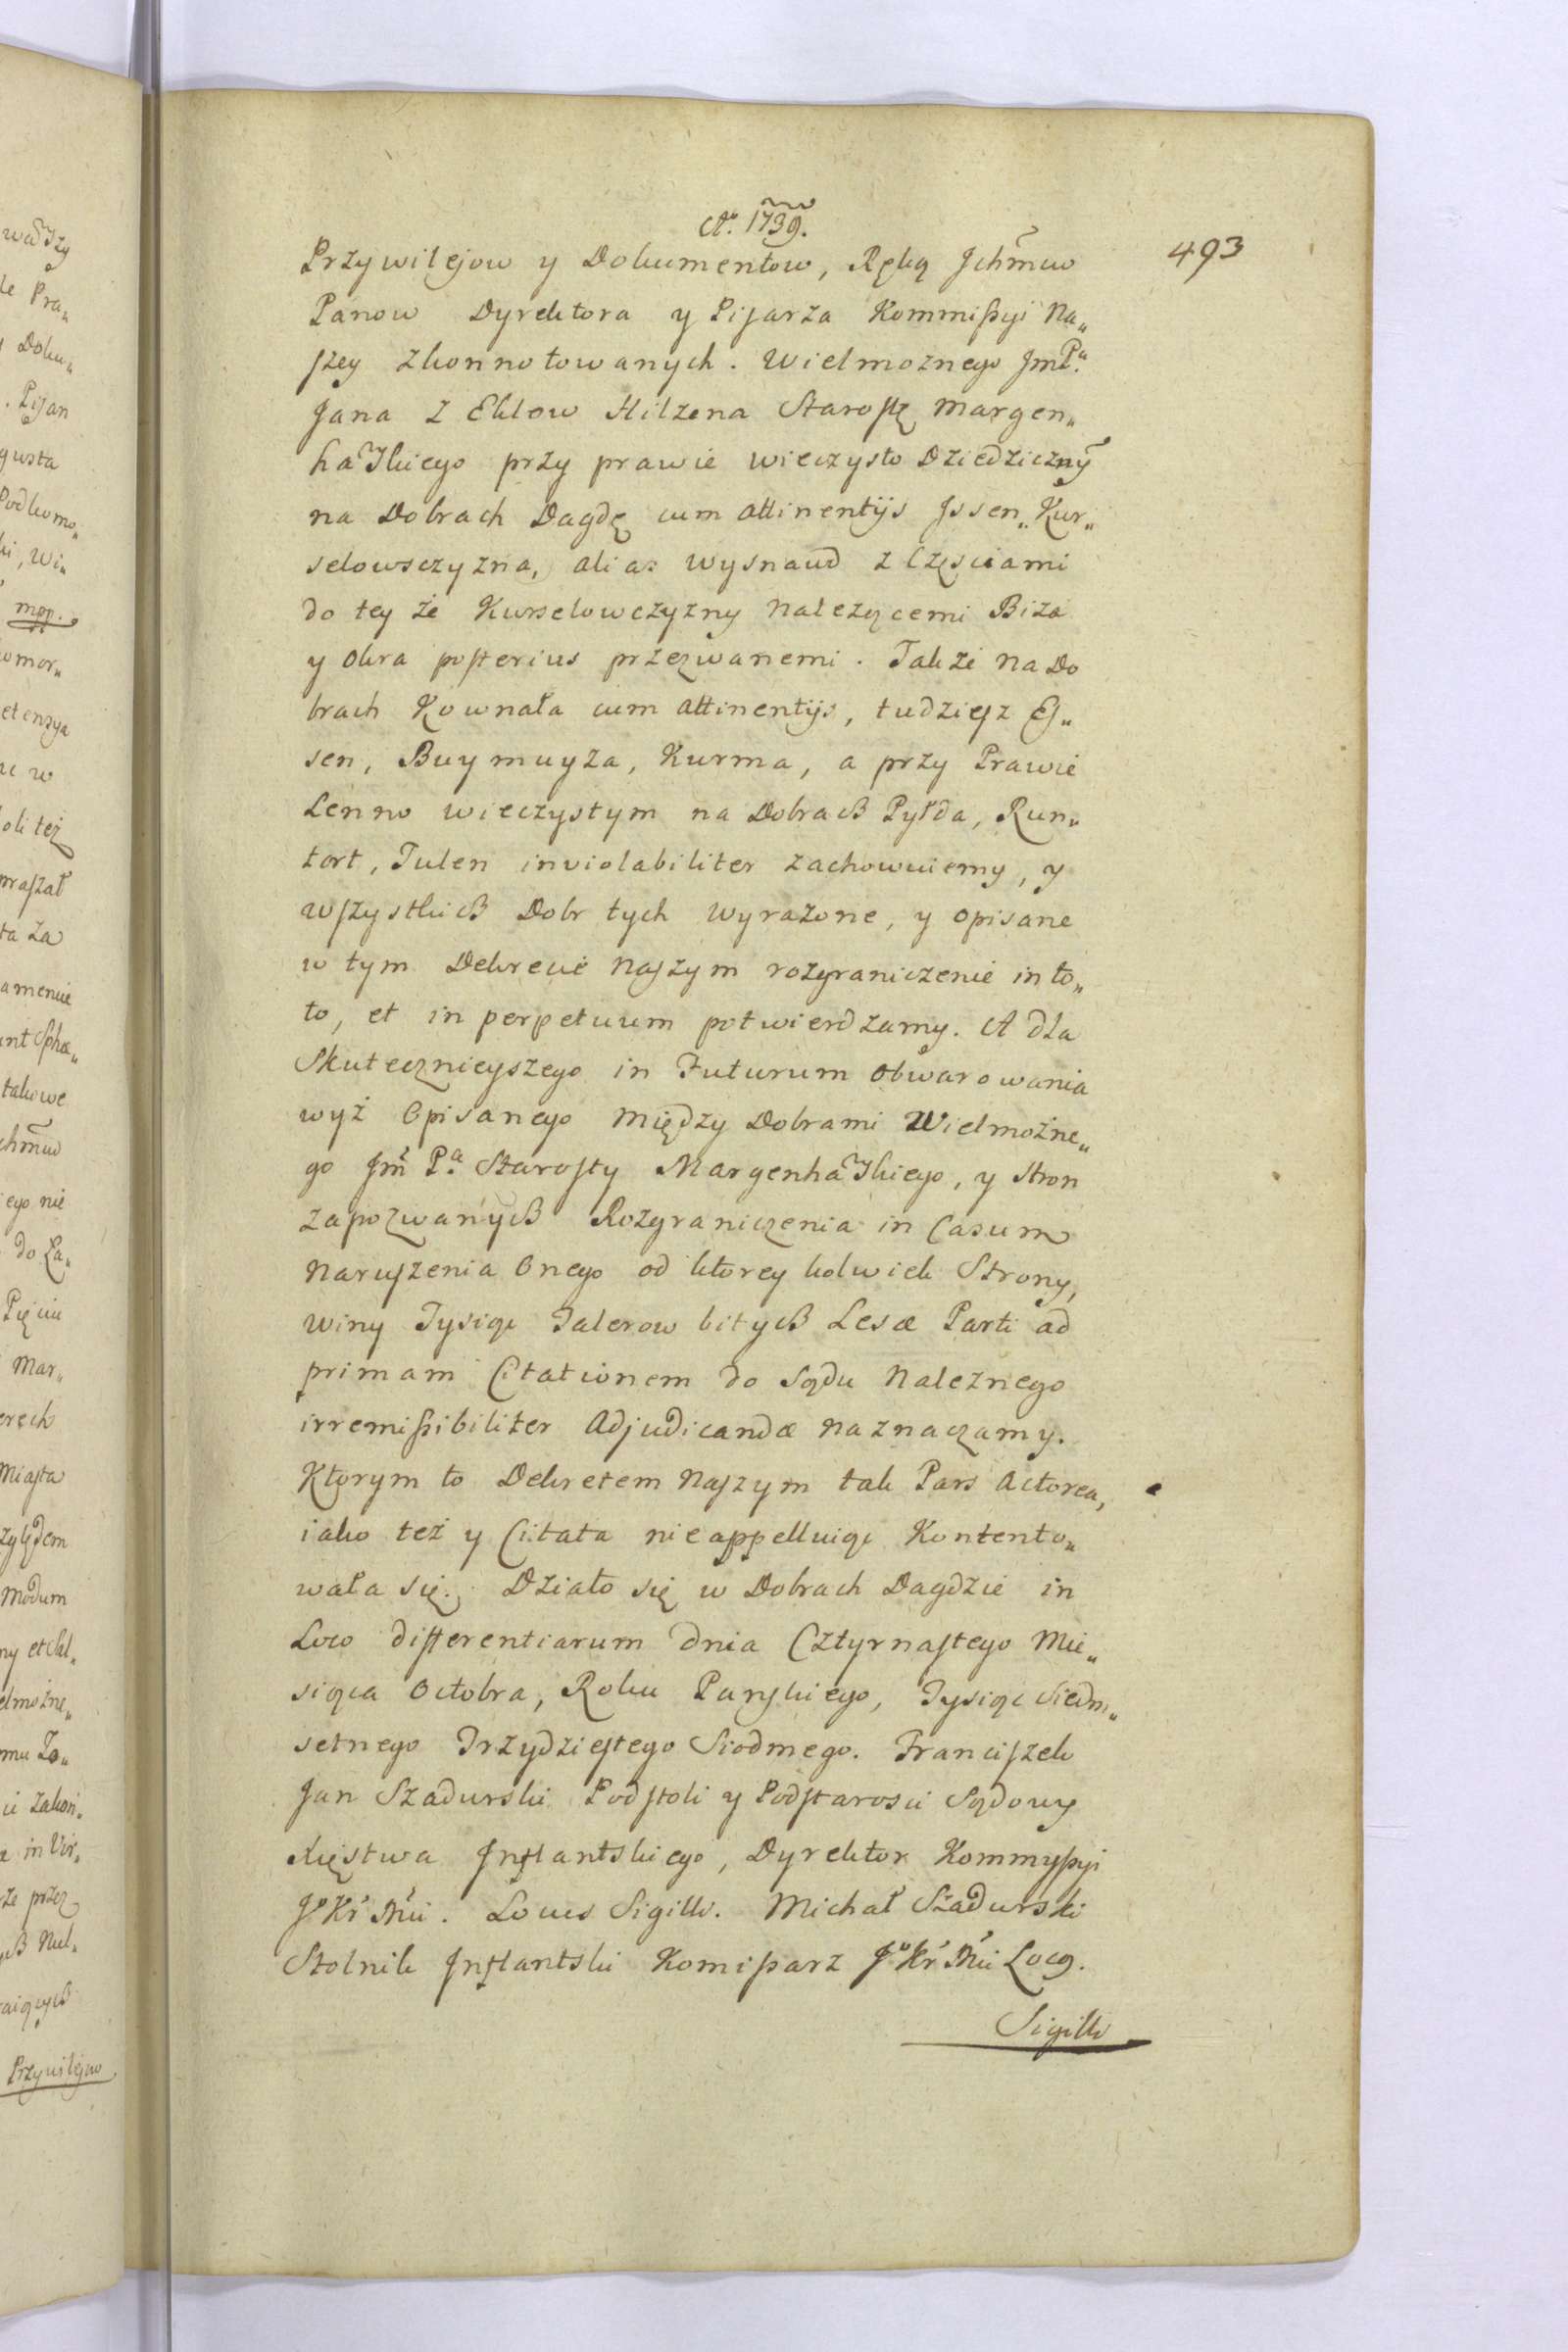 Aº 1739.
493
Przywilejow y Dokumentow, Ręką Jchmciow
Panow Dyrektora y Pisarza Kommissyi Na„
szey zkonnotowanych. Wielmoznego JmPa.
Jana z Eklow Hilzena Starostę Margen„
hawskiego przy prawie wieczysto Dziedziczny
na Dobrach Dagdę cum attinentijs Jssen„ Kur„
selowsczyzna, alias Wysnaud z Częsciami
do tey że Kurselowczyzny należącemi Biza
y Okra posterius przezwanemi. Także na Do
brach Kownata cum attinentijs, tudziesz Es„
sen, Buymuyza, Kurma, a przy Prawie
Lenno wieczystym na Dobrach Pyłda, Run„
tort, Tulen inviolabiliter zachowuiemy, y
wszystkich Dobr tych wyrazone, y opisane
w tym Dekrecie naszym rozgraniczenie in to„
to, et in perpetuum potwierdzamy. A dla
Skutecznieyszego in Futurum obwarowania
wyż Opisanego między Dobrami Wielmożne„
go Jm Pa Starosty Margenhawskiego, y stron
zapozwanych Rozgraniczenia in Casum
naruszenia Onego od ktorey kolwiek Strony,
winy Tysiąc Talerow bitych Lesæ Parti ad
primam Citationem do Sądu Należnego
irremissibiliter Adjudicandæ naznaczamy.
Ktorym to Dekretem Naszym tak Pars Actorea,
iako też y Citata nieappelluiąc Kontento„
wała się. Działo się w Dobrach Dagdzie in
Loco differentiarum Dnia Cztyrnastego Mie„
siąca Octobra, Roku Panskiego, Tysiąc Siedm„
setnego Trzydziestego Siodmego. Franciszek
Jan Szadurski Podstoli y Podstarosci Sądowy
Xięstwa Inflantskiego, Dyrektor Kommyssyi
Jo Kr Mci. Locus Sigilli. Michał Szadurski
Stolnik Inflantski Komissarz Jo Kr Mci Locg.
Sigilli